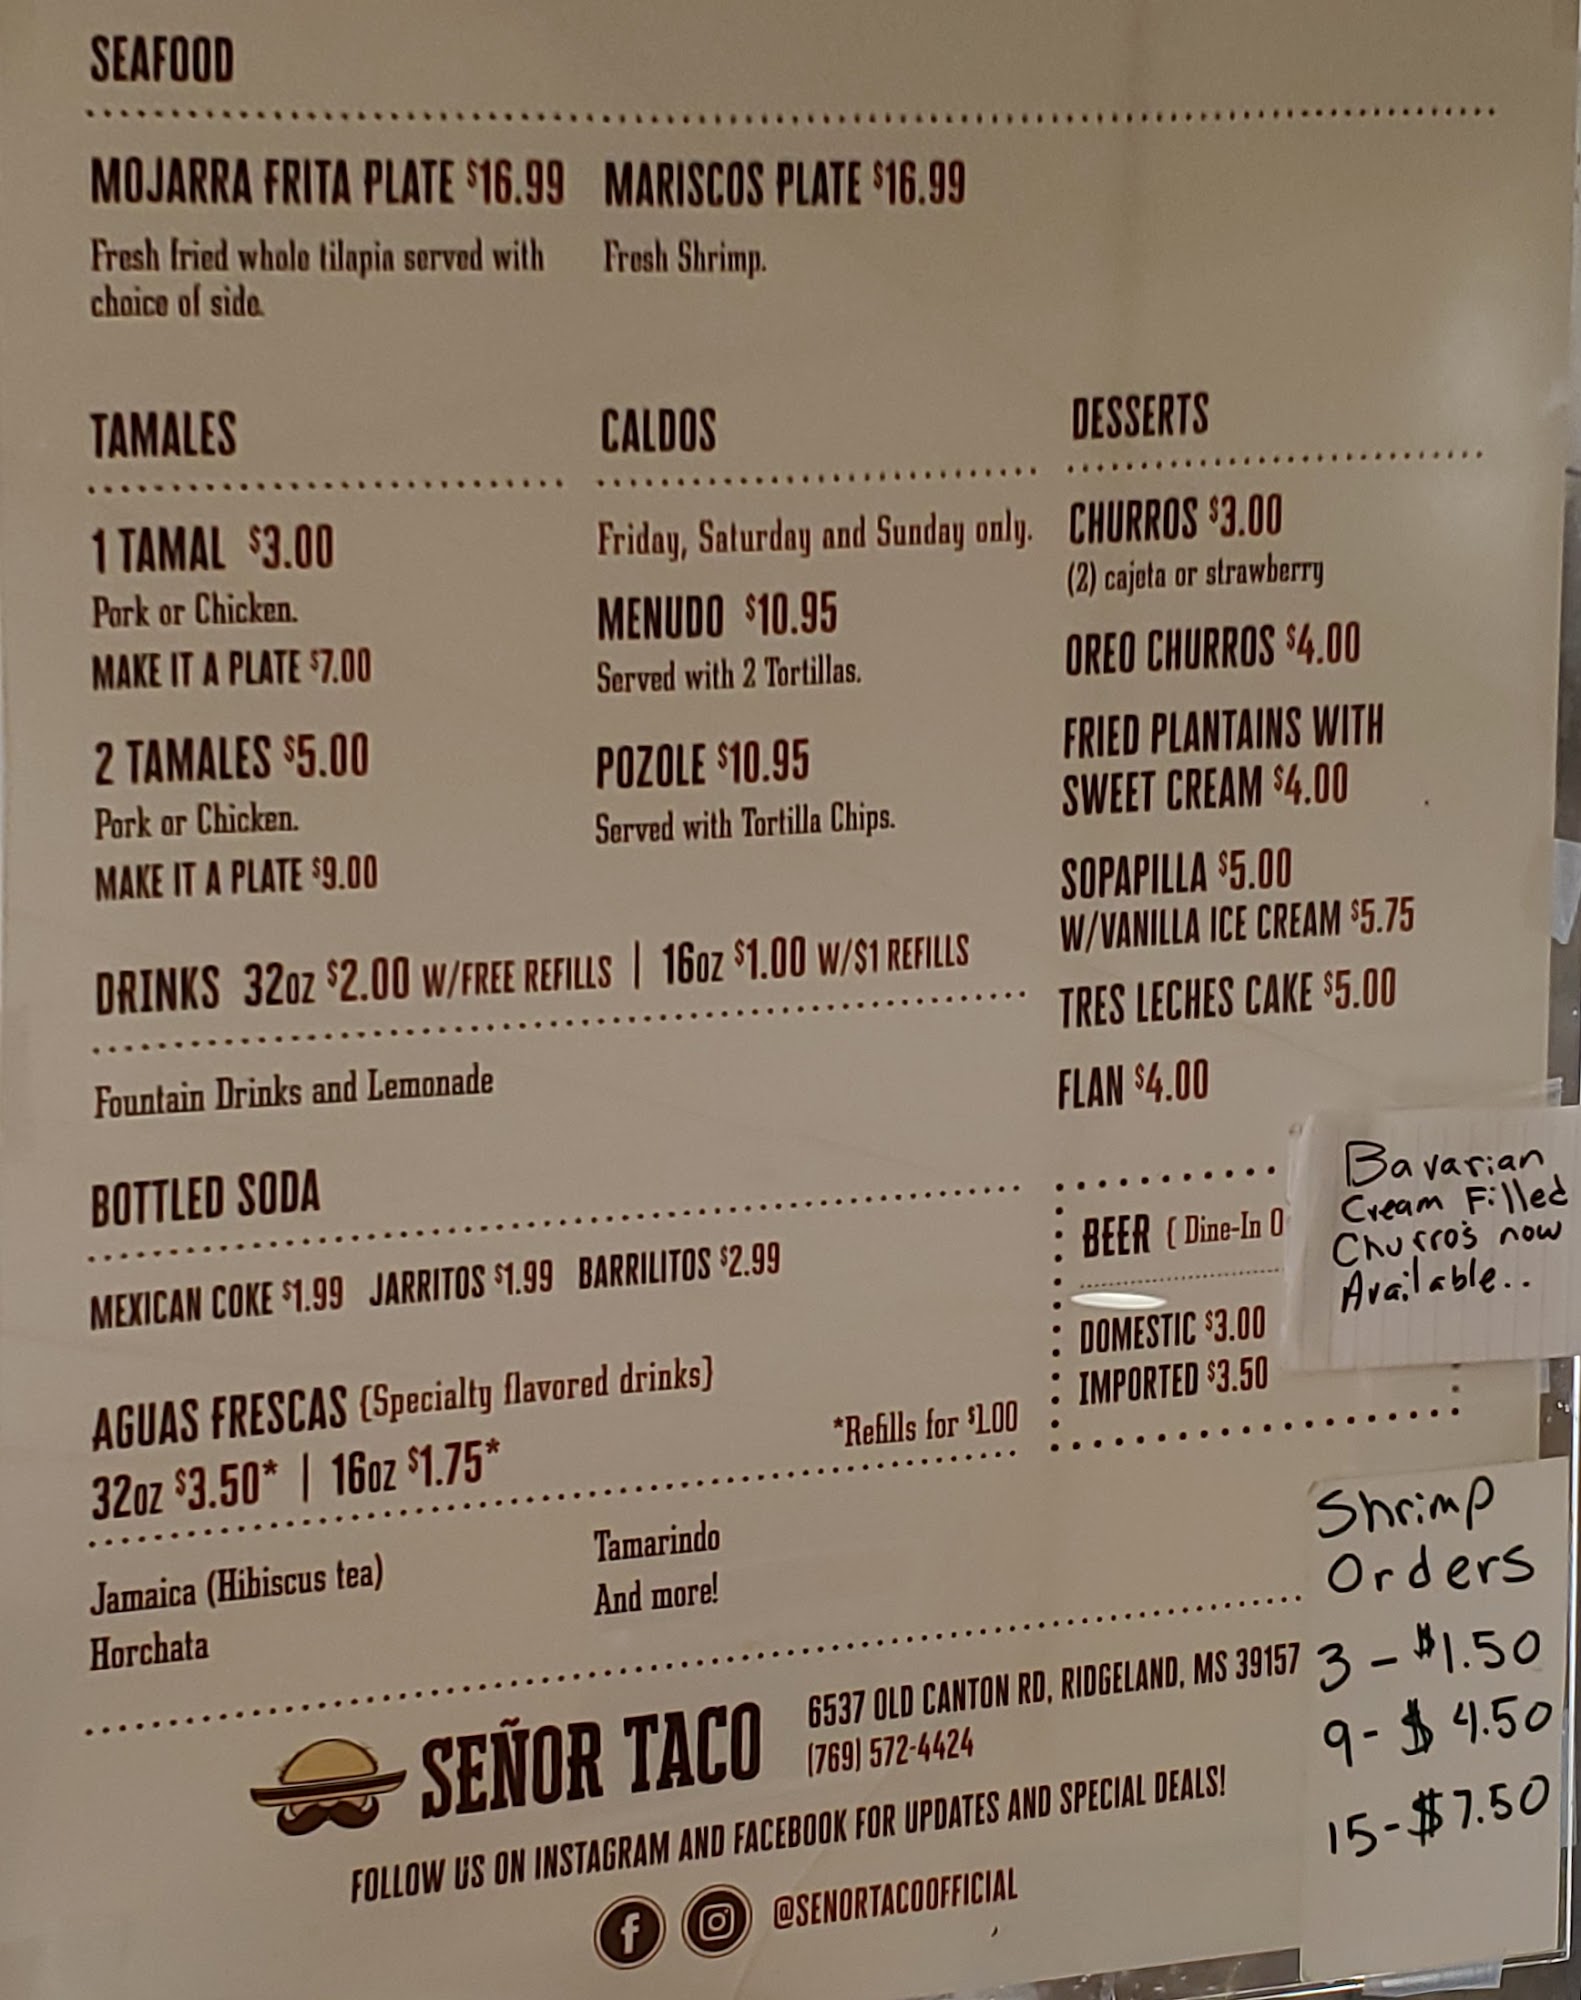 SEAFOOD
MOJARRA FRITA PLATE $16.99
Fresh fried whole tilapia served with
choice of side.
MARISCOS PLATE $16.99
Fresh Shrimp.
TAMALES
1 TAMAL $3.00
Pork or Chicken.
MAKE IT A PLATE $7.00
2 TAMALES $5.00
Pork or Chicken.
MAKE IT A PLATE $9.00
CALDOS
Friday, Saturday and Sunday only.
MENUDO $10.95
Served with 2 Tortillas.
POZOLE $10.95
Served with Tortilla Chips.
DESSERTS
CHURROS $3.00
(2) cajeta or strawberry
OREO CHURROS $4.00
FRIED PLANTAINS WITH
SWEET CREAM $4.00
SOPAPILLA $5.00
W/VANILLA ICE CREAM $5.75
TRES LECHES CAKE $5.00
FLAN $4.00
DRINKS 32oz $2.00 W/FREE REFILLS | 16oz $1.00 W/$1 REFILLS
Fountain Drinks and Lemonade
BOTTLED SODA
MEXICAN COKE $1.99 JARRITOS $1.99 BARRILITOS $2.99
BEER { Dine-In O
DOMESTIC $3.00
IMPORTED $3.50
Bavarian
Cream Filled
Churro's now
Available..
AGUAS FRESCAS {Specialty flavored drinks}
32oz $3.50* | 16oz $1.75*
*Refills for $1.00
Jamaica (Hibiscus tea)
Horchata
Tamarindo
And more!
Shrimp
Orders
3 - $1.50
9 - $4.50
15 - $7.50
SEÑOR TACO
6537 OLD CANTON RD, RIDGELAND, MS 39157
(769) 572-4424
FOLLOW US ON INSTAGRAM AND FACEBOOK FOR UPDATES AND SPECIAL DEALS!
@SENORTACOOFFICIAL